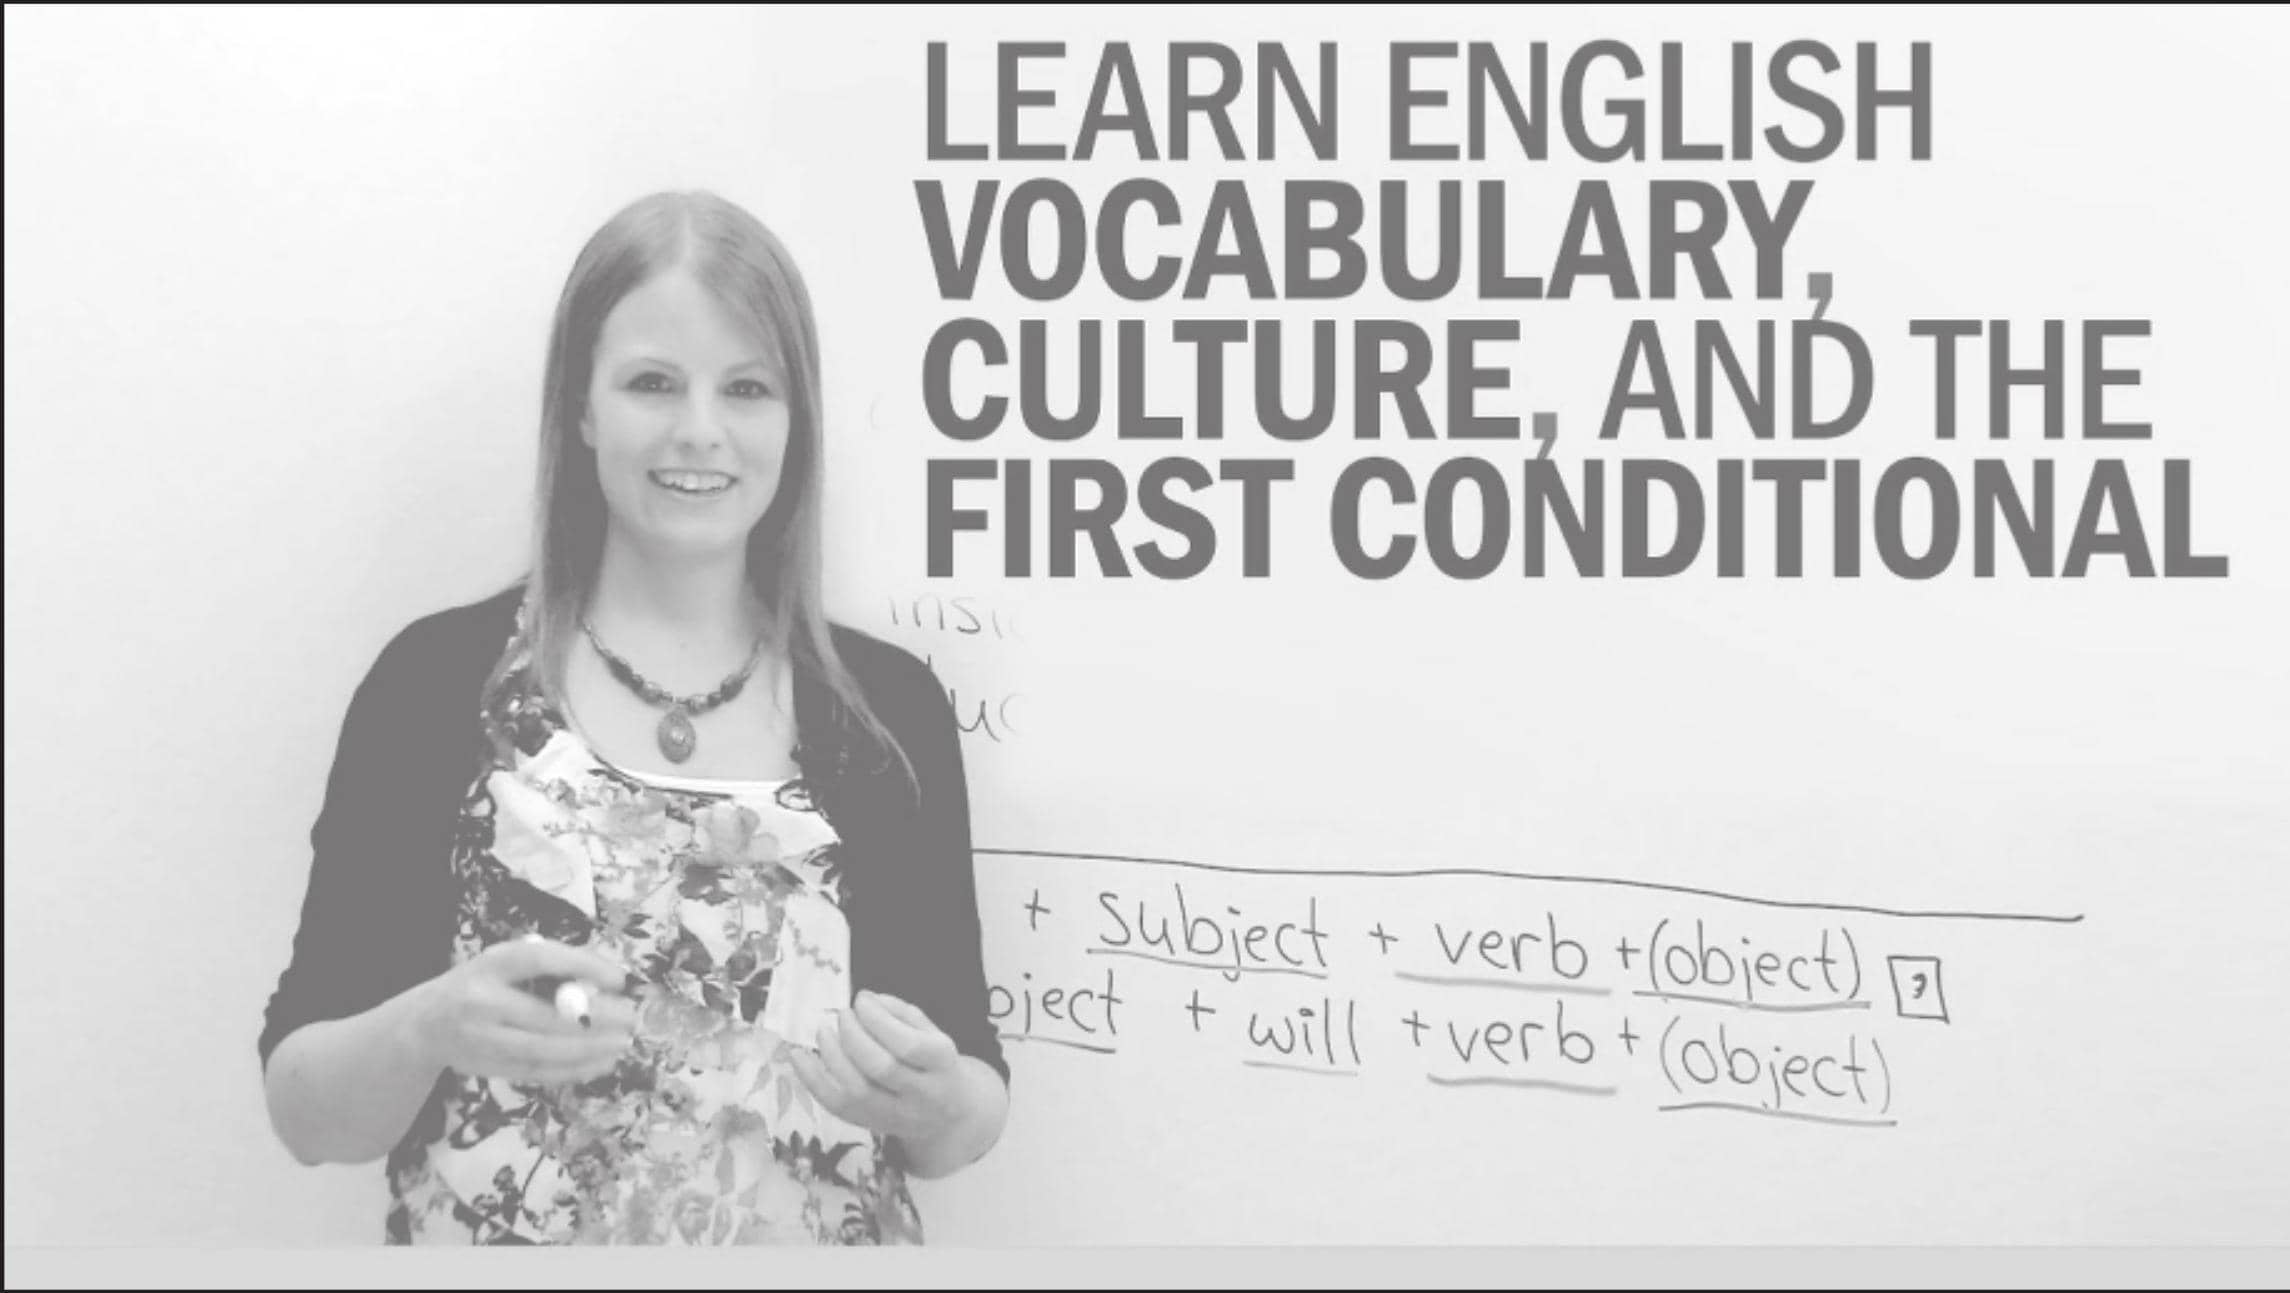 LEARN ENGLISH
VOCABULARY,
CULTURE, AND THE
FIRST CONDITIONAL
+ subject + verb +(object) ,
+ will + verb + (object)